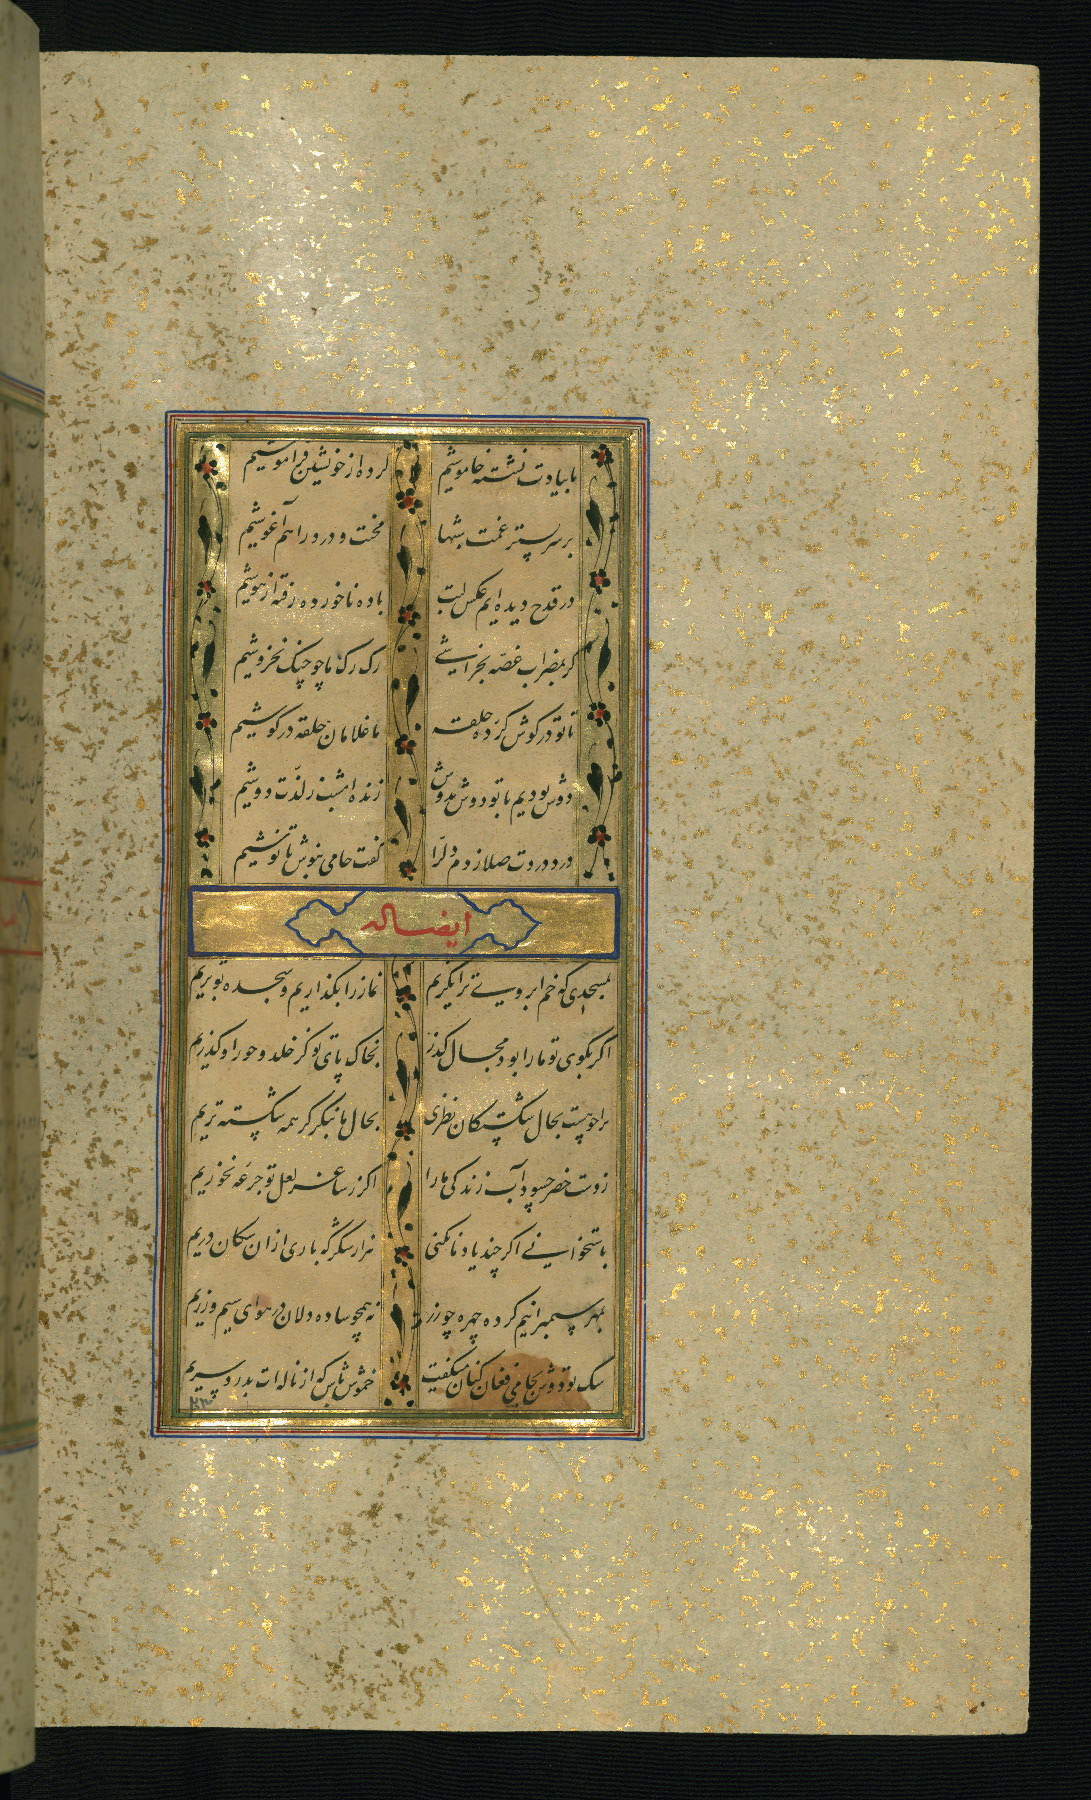 ما بیادت نشسته خاموشیم کرده از خویشتن فراموشیم
بر سر بستر غمت شبها محنت و درد را هم آغوشیم
در قدح دیده ایم عکس لبت باده ناخورده رفته از هوشیم
گر بمضراب غصه بخراشی رک رک ما چو چنک نخروشیم
تا تو در کوش کرده حلقه ما غلامان حلقه در کوشیم
دوش بودیم با تو دوش بدوش زنده امشب ز لذت دوشیم
درد دردت صلا زدم دل را گفت جامی بنوش تا نوشیم
ایضا له
بمسجدی که خم ابروی ترا نکریم نماز را بکذاریم و سجده تو بریم
اکر بکوی تو ما را بود مجال کذر بخاک پای تو کز خلد و حور او کذریم
چراحوست بحال شکستکان نظری بحال ما نبکر کز همه شکسته تریم
ز دست خضر چه سود آب زندکی ما را اکر ز ساغر لعل تو جرعه نخوریم
باستخوانی اکر چند یاد ما نکنی هزار شکر که باری ازان سکان دریم
بمهر سیمبرانیم کرده چهره چو زر نه همچو ساده دلان در هوای سیم و زریم
سک تو دوش بجامی فغان کنان میکفت خموش باش که از ناله ات بدرد سریم